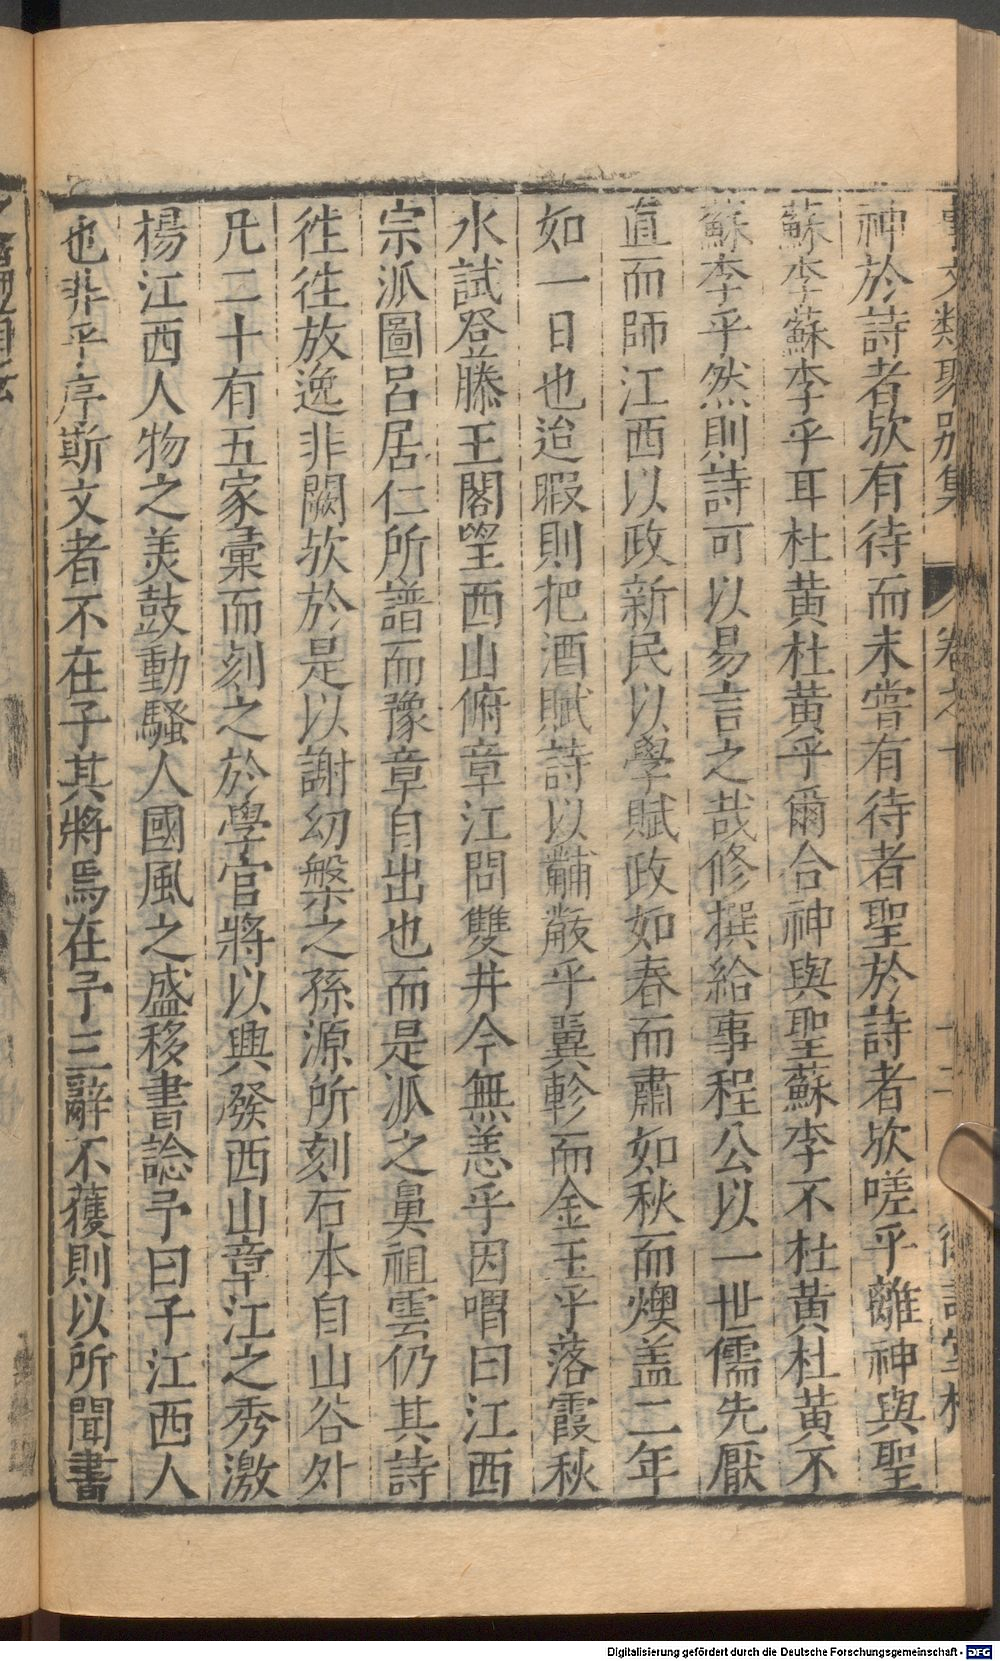 事文類聚別集 卷之十 十二
神於詩者歟有待而未嘗有待者聖於詩者歟嗟乎離神與聖
蘇李蘇李乎耳杜黃杜黃乎爾合神與聖蘇李不杜黃杜黃不
蘇李乎然則詩可以易言之哉修撰給事程公以一世儒先厭
直而師江西以政新民以學賦政如春而肅如秋而燠盖二年
如一日也迨暇則把酒賦詩以黼黻乎翼軫而金玉乎落霞秋
水試登滕王閣望西山俯章江問雙井今無恙乎因喟曰江西
宗派圖呂居仁所譜而豫章自出也而是派之鼻祖雲仍其詩
徃徃放逸非闕歟於是以謝幼槃之孫源所刻石本自山谷外
凡二十有五家彙而刻之於學官將以興發西山章江之秀激
楊江西人物之美鼓動騷人國風之盛移書諗予曰子江西人
也非乎序斯文者不在子其將焉在予三辭不獲則以所聞書
Digitalisierung gefördert durch die Deutsche Forschungsgemeinschaft - DFG